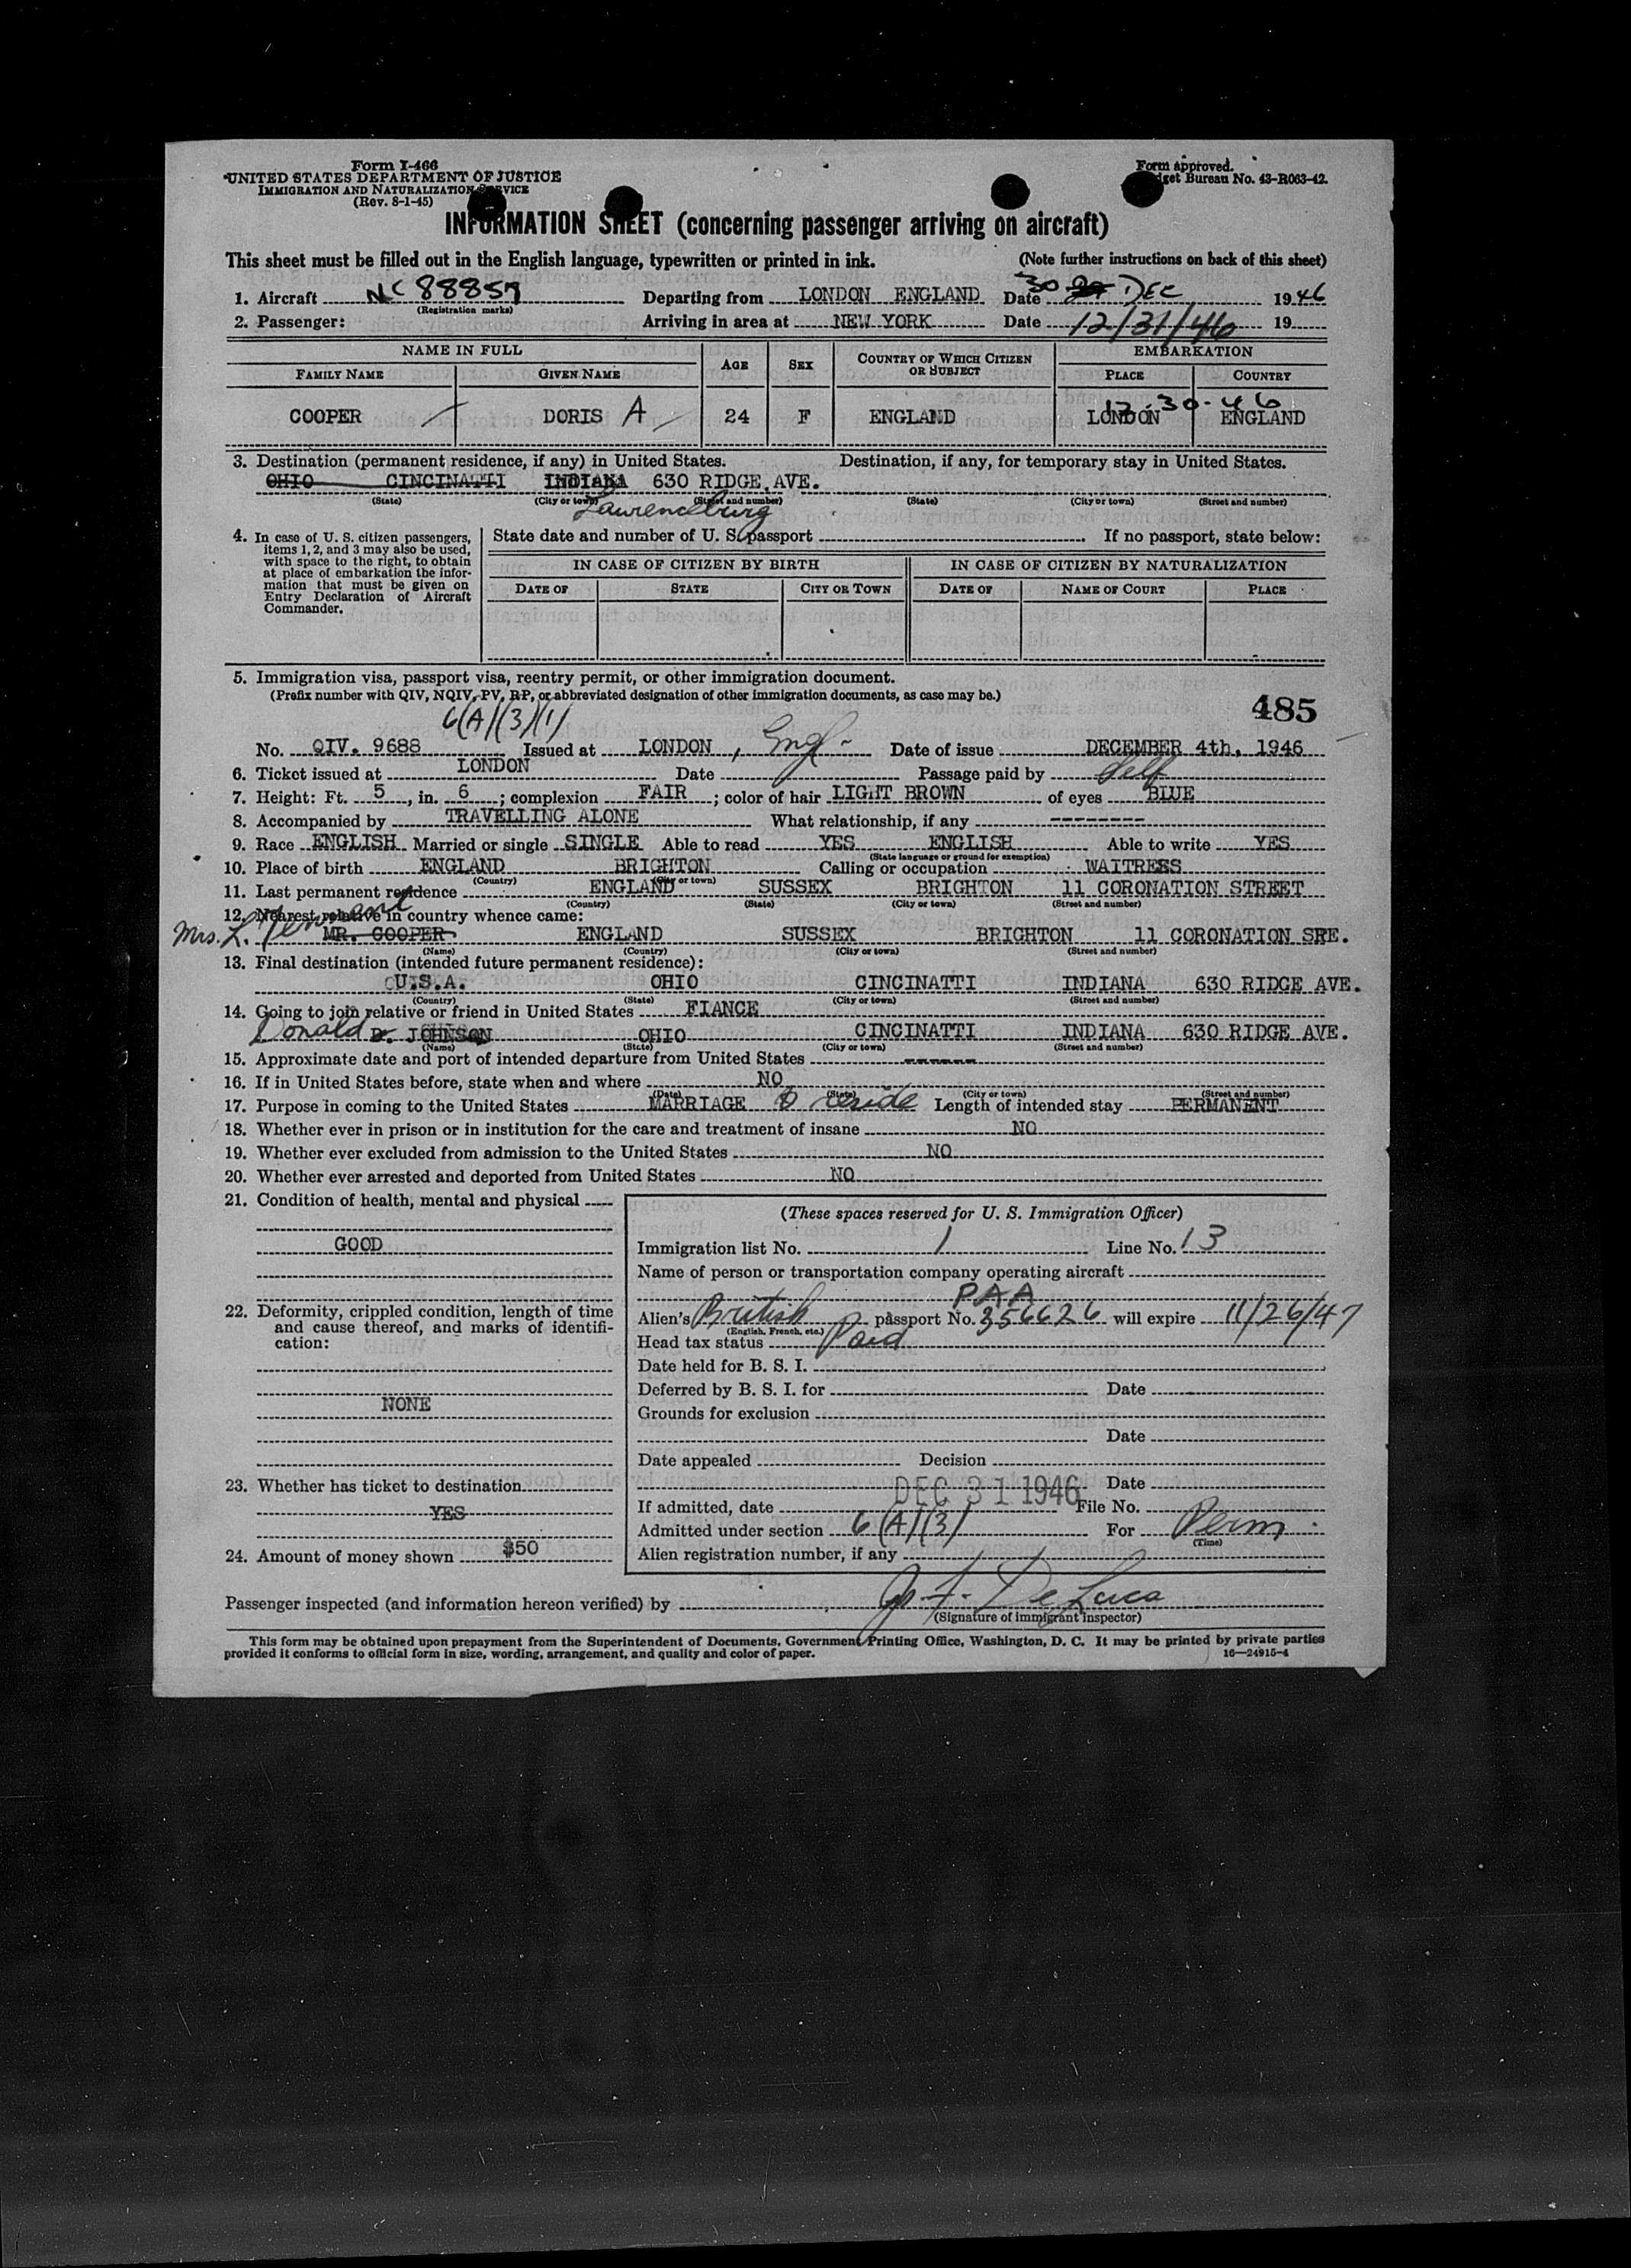 Form I-466
UNITED STATES DEPARTMENT OF JUSTICE
IMMIGRATION AND NATURALIZATION SERVICE
(Rev. 8-1-45)
Form approved.
Budget Bureau No. 43-R063-42.
INFORMATION SHEET (concerning passenger arriving on aircraft)
This sheet must be filled out in the English language, typewritten or printed in ink. (Note further instructions on back of this sheet)
1. Aircraft NC 88857 Departing from LONDON ENGLAND Date 30 DEC 1946
(Registration marks)
2. Passenger: Arriving in area at NEW YORK Date 12/31/46 19
NAME IN FULL AGE SEX COUNTRY OF WHICH CITIZEN OR SUBJECT EMBARKATION
FAMILY NAME GIVEN NAME PLACE COUNTRY
12-30-46
COOPER DORIS A 24 F ENGLAND LONDON ENGLAND
3. Destination (permanent residence, if any) in United States. Destination, if any, for temporary stay in United States.
OHIO CINCINATTI INDIANA 630 RIDGE AVE.
(State) (City or town) (Street and number) (State) (City or town) (Street and number)
Lawrenceburg
4. In case of U. S. citizen passengers, items 1, 2, and 3 may also be used, with space to the right, to obtain at place of embarkation the information that must be given on Entry Declaration of Aircraft Commander.
State date and number of U. S. passport If no passport, state below:
IN CASE OF CITIZEN BY BIRTH IN CASE OF CITIZEN BY NATURALIZATION
DATE OF STATE CITY OR TOWN DATE OF NAME OF COURT PLACE
5. Immigration visa, passport visa, reentry permit, or other immigration document.
(Prefix number with QIV, NQIV, PV, RP, or abbreviated designation of other immigration documents, as case may be.)
485
6(A)(3)(1)
No. QIV. 9688 Issued at LONDON, Engl. Date of issue DECEMBER 4th, 1946
6. Ticket issued at LONDON Date Passage paid by Self
7. Height: Ft. 5, in. 6; complexion FAIR; color of hair LIGHT BROWN of eyes BLUE
8. Accompanied by TRAVELLING ALONE What relationship, if any --------
9. Race ENGLISH Married or single SINGLE Able to read YES ENGLISH Able to write YES
(State language or ground for exemption)
10. Place of birth ENGLAND BRIGHTON Calling or occupation WAITRESS
(Country) (City or town)
11. Last permanent residence ENGLAND SUSSEX BRIGHTON 11 CORONATION STREET
(Country) (State) (City or town) (Street and number)
12. Nearest relative in country whence came:
Mrs. L. MR. COOPER ENGLAND SUSSEX BRIGHTON 11 CORONATION SRE.
(Name) (Country) (City or town) (Street and number)
13. Final destination (intended future permanent residence):
U.S.A. OHIO CINCINATTI INDIANA 630 RIDGE AVE.
(Country) (State) (City or town) (Street and number)
14. Going to join relative or friend in United States FIANCE
Donald D. JOHNSON OHIO CINCINATTI INDIANA 630 RIDGE AVE.
(Name) (State) (City or town) (Street and number)
15. Approximate date and port of intended departure from United States ------
16. If in United States before, state when and where NO
(Date) (State) (City or town) (Street and number)
17. Purpose in coming to the United States MARRIAGE & reside Length of intended stay PERMANENT
18. Whether ever in prison or in institution for the care and treatment of insane NO
19. Whether ever excluded from admission to the United States NO
20. Whether ever arrested and deported from United States NO
21. Condition of health, mental and physical
GOOD
22. Deformity, crippled condition, length of time and cause thereof, and marks of identification:
NONE
23. Whether has ticket to destination
YES
24. Amount of money shown $50
(These spaces reserved for U. S. Immigration Officer)
Immigration list No. 1 Line No. 13
Name of person or transportation company operating aircraft
PAA
Alien's British passport No. 356626 will expire 11/26/47
(English, French, etc.)
Head tax status Paid
Date held for B. S. I.
Deferred by B. S. I. for Date
Grounds for exclusion
Date
Date appealed Decision
Date
If admitted, date DEC 31 1946 File No.
Admitted under section 6(A)(3) For Perm.
(Time)
Alien registration number, if any
Passenger inspected (and information hereon verified) by J. F. DeLuca
(Signature of immigrant inspector)
This form may be obtained upon prepayment from the Superintendent of Documents, Government Printing Office, Washington, D. C. It may be printed by private parties
provided it conforms to official form in size, wording, arrangement, and quality and color of paper. 16—24915-4